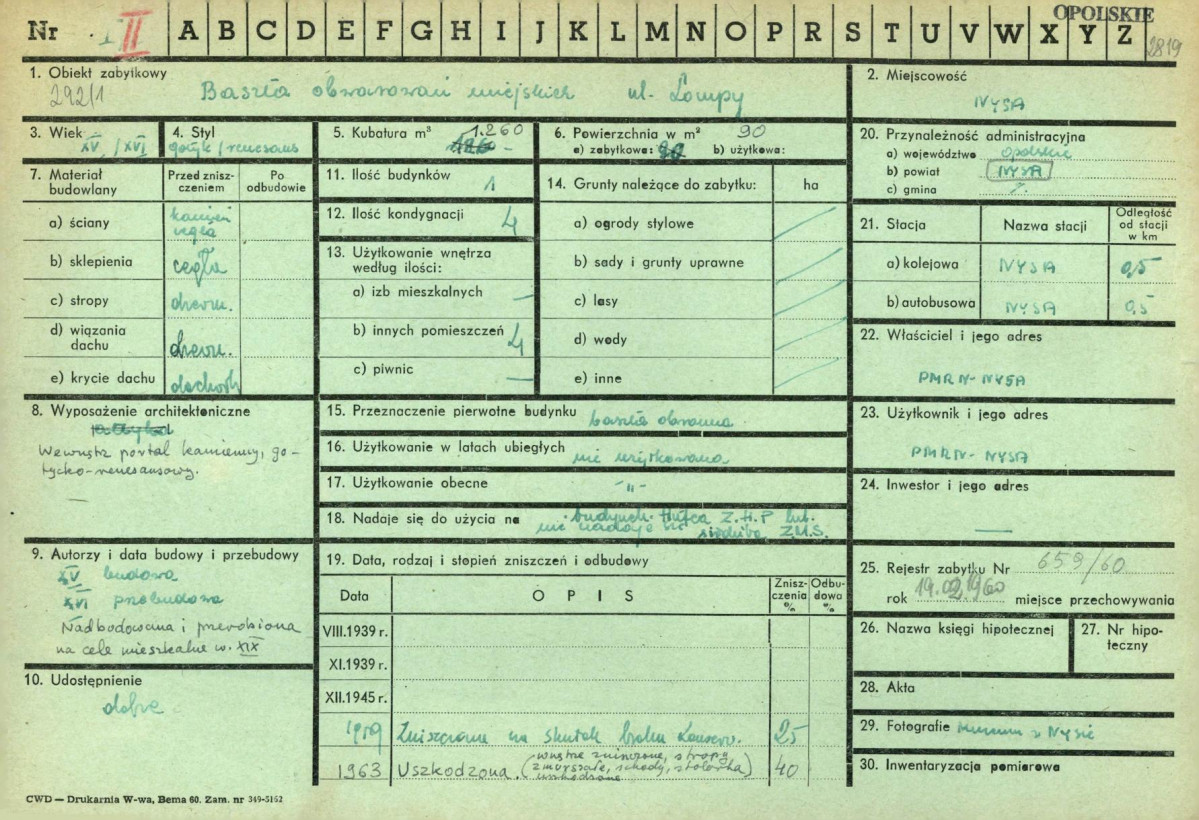 OPOLSKIE
Nr II A B C D E F G H I J K L M N O P R S T U V W X Y Z
2819
1. Obiekt zabytkowy
292/1
Baszta obwarowań miejskich ul. Lompy
2. Miejscowość
NYSA
3. Wiek
XV / XVI
4. Styl
gotyk / renesans
5. Kubatura m³
1.260
6. Powierzchnia w m² 90
a) zabytkowa: b) użytkowa:
7. Materiał budowlany
Przed znisz-
czeniem
Po
odbudowie
a) ściany
kamień
cegła
b) sklepienia cegła
c) stropy drewn.
d) wiązania
dachu drewn.
e) krycie dachu dachówk
8. Wyposażenie architektoniczne
Wewnątrz portal kamienny, go-
tycko-renesansowy.
—
9. Autorzy i data budowy i przebudowy
XV budowa
XVI przebudowa
Nadbudowana i przerobiona
na cele mieszkalne w. XIX
10. Udostępnienie
dobre
11. Ilość budynków 1
12. Ilość kondygnacji 4
13. Użytkowanie wnętrza
według ilości:
a) izb mieszkalnych —
b) innych pomieszczeń 4
c) piwnic —
14. Grunty należące do zabytku: ha
a) ogrody stylowe
b) sady i grunty uprawne
c) lasy
d) wody
e) inne
15. Przeznaczenie pierwotne budynku baszta obronna
16. Użytkowanie w latach ubiegłych nie użytkowana
17. Użytkowanie obecne -"-
18. Nadaje się do użycia na
budynek hufca Z.H.P lub.
nie nadaje się
siedziba ZMS.
19. Data, rodzaj i stopień zniszczeń i odbudowy
Data
O P I S
Znisz-
czenia
%
Odbu-
dowa
%
VIII.1939 r.
XI.1939 r.
XII.1945 r.
1959 Zniszczona na skutek braku konserw. 25
1963 Uszkodzona. (wnętrze zniszczone, stropy
zmurszałe, schody, stolarka)
uszkodzone
40
20. Przynależność administracyjna
a) województwo opolskie
b) powiat NYSA
c) gmina
21. Stacja
Nazwa stacji
Odległość
od stacji
w km
a) kolejowa NYSA 0,5
b) autobusowa NYSA 0,5
22. Właściciel i jego adres
PMRN-NYSA
23. Użytkownik i jego adres
PMRN-NYSA
24. Inwestor i jego adres
—
25. Rejestr zabytku Nr 659/60
rok 19.02.1960 miejsce przechowywania
26. Nazwa księgi hipotecznej
27. Nr hipo-
teczny
28. Akta
29. Fotografie Muzeum w Nysie
30. Inwentaryzacja pomiarowa
CWD — Drukarnia W-wa, Bema 60. Zam. nr 349-5162